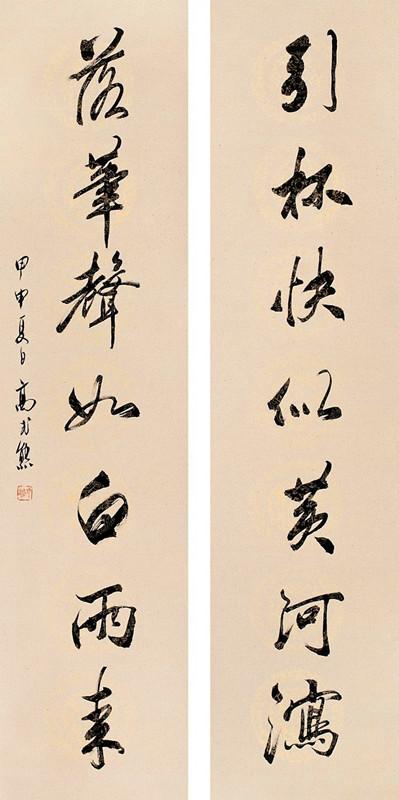 引杯快似黄河瀉
落筆聲如白雨来
甲申夏日高式熊